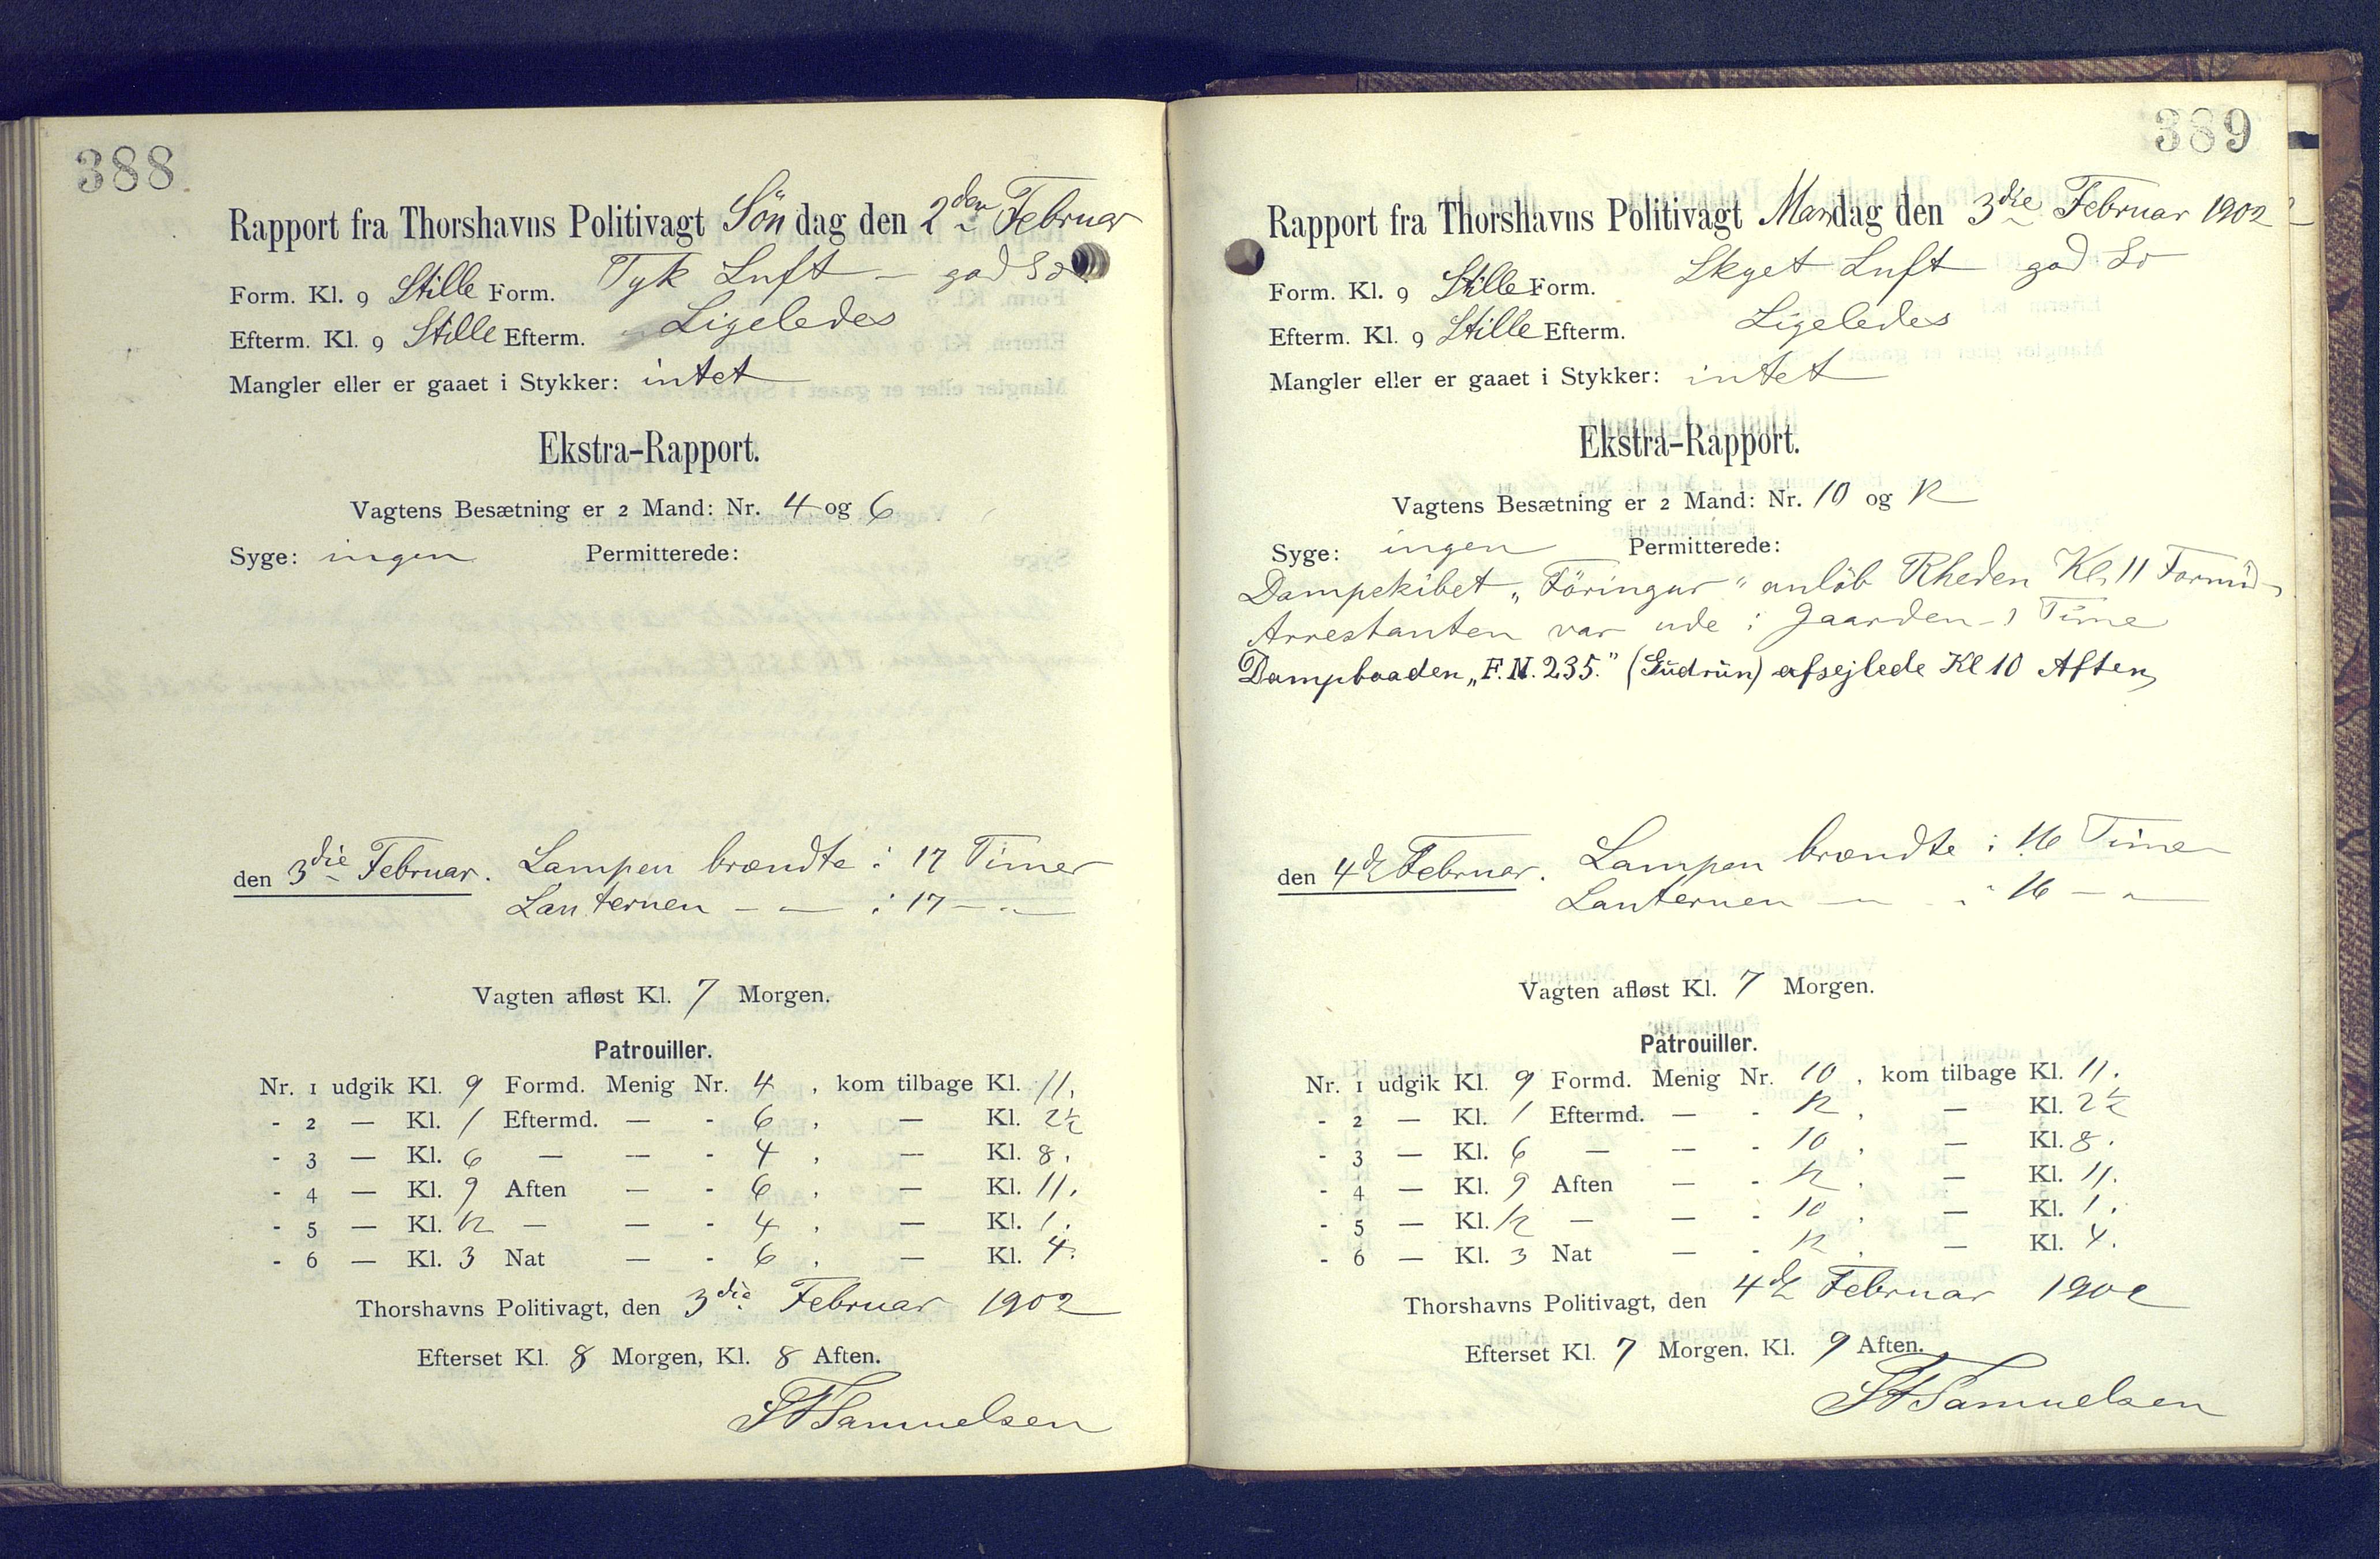 388
Rapport fra Thorshavns Politivagt Söndag den 2den Februar
Form. Kl. 9 Stille Form. Tyk Luft – god Sö
Efterm. Kl. 9 Stille Efterm. Ligeledes
Mangler eller er gaaet i Stykker: intet
Ekstra-Rapport.
Vagtens Besætning er 2 Mand: Nr. 4 og 6
Syge: ingen Permitterede:
den 3die Februar. Lampen brændte i 17 Timer
Lanternen – „ – i 17 – „ –
Vagten afløst Kl. 7 Morgen.
Patrouiller.
Nr. 1 udgik Kl. 9 Formd. Menig Nr. 4 , kom tilbage Kl. 11.
- 2 — Kl. 1 Eftermd. — - 6 , — Kl. 2½
- 3 — Kl. 6 — — - 4 , — Kl. 8.
- 4 — Kl. 9 Aften — - 6 , — Kl. 11.
- 5 — Kl. 12 — — - 4 , — Kl. 1.
- 6 — Kl. 3 Nat — - 6 , — Kl. 4.
Thorshavns Politivagt, den 3die Februar 1902
Efterset Kl. 8 Morgen, Kl. 8 Aften.
Samuelsen
389
Rapport fra Thorshavns Politivagt Mandag den 3die Februar 1902
Form. Kl. 9 Stille Form. Skyet Luft god Sö
Efterm. Kl. 9 Stille Efterm. Ligeledes
Mangler eller er gaaet i Stykker: intet
Ekstra-Rapport.
Vagtens Besætning er 2 Mand: Nr. 10 og 12
Syge: ingen Permitterede:
Dampskibet „Föringur" anlöb Rheden Kl. 11 Formid-
Arrestanten var ude i Gaarden 1 Time
Dampbaaden „F.N. 235." (Gudrun) afsejlede Kl 10 Aften
den 4de Februar. Lampen brændte i 16 Timer
Lanternen – „ – i 16 – „ –
Vagten afløst Kl. 7 Morgen.
Patrouiller.
Nr. 1 udgik Kl. 9 Formd. Menig Nr. 10 , kom tilbage Kl. 11.
- 2 — Kl. 1 Eftermd. — - 12 , — Kl. 2½
- 3 — Kl. 6 — — - 10 , — Kl. 8.
- 4 — Kl. 9 Aften — - 12 , — Kl. 11.
- 5 — Kl. 12 — — - 10 , — Kl. 1.
- 6 — Kl. 3 Nat — - 12 , — Kl. 4.
Thorshavns Politivagt, den 4de Februar 1902
Efterset Kl. 7 Morgen, Kl. 9 Aften.
Samuelsen